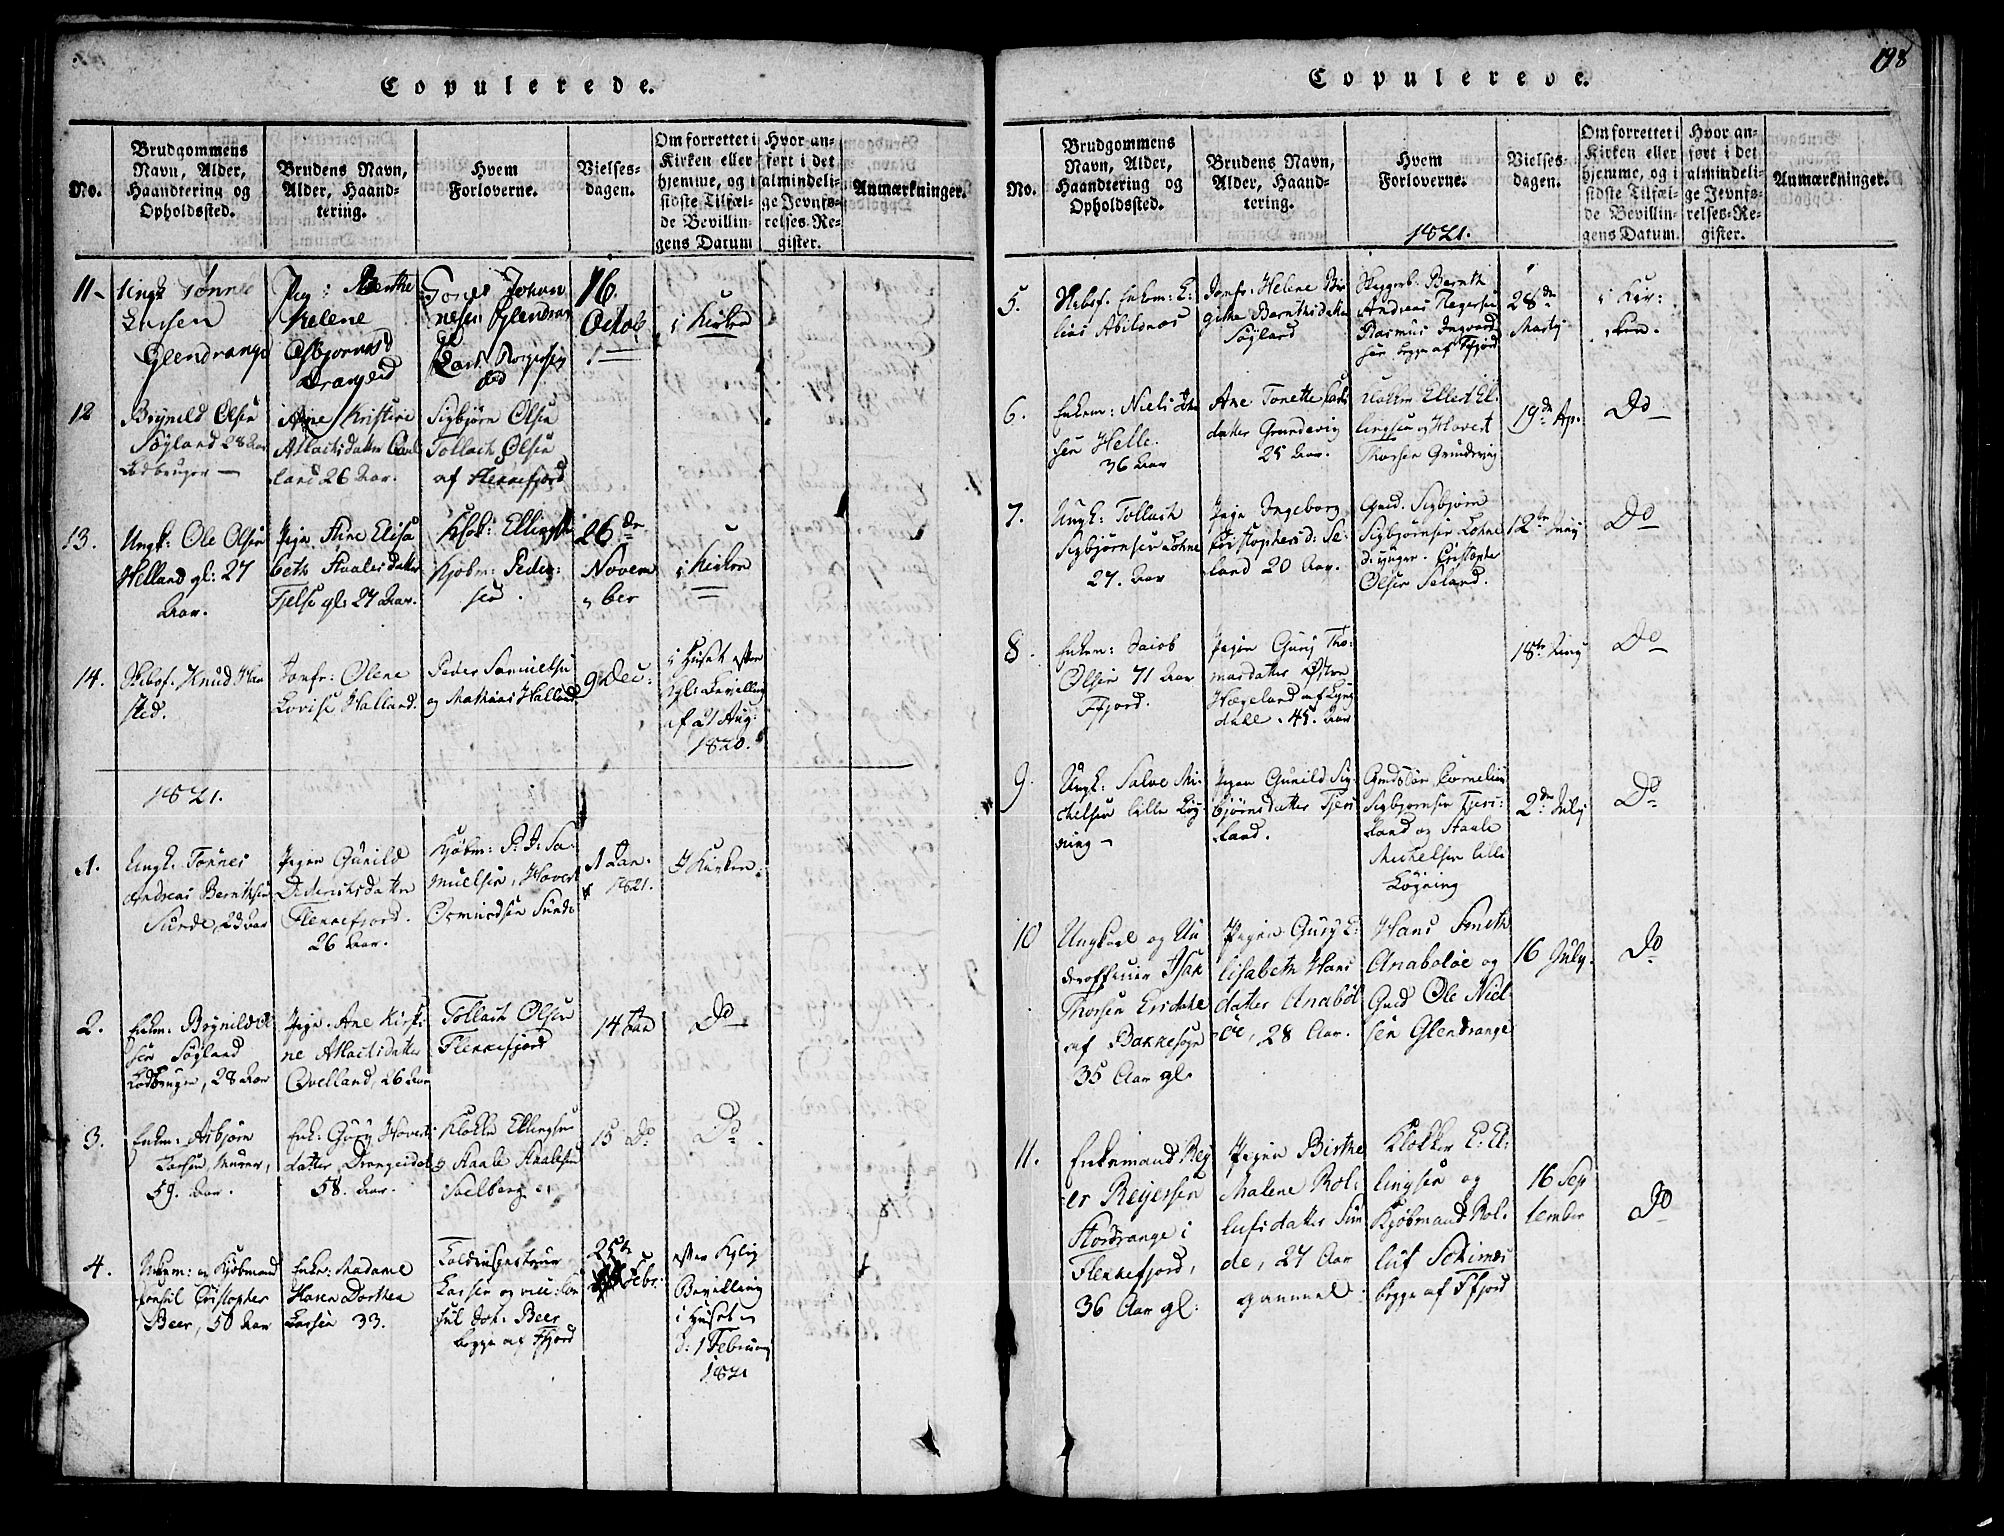 Copulerede.
No.
Brudgommens
Navn, Alder,
Haandtering og
Opholdssted.
Brudens Navn,
Alder, Haand-
tering.
Hvem
Forloverne.
Vielses-
dagen.
Om forrettet i
Kirken eller
hjemme, og i
sidste Tilfæl-
de Bevillin-
gens Datum
Hvor an-
ført i det
almindeli-
ge Jevnfø-
relses-Re-
gister.
Anmærkninger.
11
Ungk Tønnes
Larsen
Glendrange
Pig: Berthe
Helene
Asbjornsd
Drangeid
Johan
nesen Glendran
16
Octob
i Kirken
12
Brynild Olsen
Søyland 28 Aar
Ane Kristine
Atlachsdatter
land 26 Aar.
Sigbjørn Olsen
Tollach Olsen
af Flekkefjord
13.
Ungk: Ole Olsen
Helland gl: 27
Aar.
Pign Stine Elisa
beth Staalesdatter
Fjelse gl: 27 Aar.
Klok: Ellingsen
Kjøbm: Peder-
sen.
26de
Novem
ber
i Kirken
14.
Skibsf. Knud Han
sted.
Jomfr: Olene
Lovise Halland.
Peder Samuelsen
og Mathias Halland
9 Dec:
i Huset efter
kgl: Bevilling
af 21 Aug:
1820.
1821.
1.
Ungk: Tønnes
Andreas Bernthsen
Sunde, 23 Aar
Pigen Gunild
Dideriksdatter
Flekkefjord.
26 Aar.
Kjøbm: P. D. Sa-
muelsen, Hovert
Osmundsen Sunde
1 Jan.
1821.
I Kirken
2.
Enkm: Brynild Ol
sen Søyland
Lodbruger, 28 Aar
Pign. Ane Kirsti-
ne Atlachsdatter
Øvelland, 26 Aar
Tollach Olsen
Flekkefjord
14 Jan
Do
3.
Enkm: Asbjørn
Larsen, Murer,
59. Aar.
Enk: Gury Hoverts
datter Drangeidal
58. Aar.
Klokker Ellingsen
og Staale Staalesen
Soelberg
15 Do
Do
4.
Ungm: og Kjøbmand
Consul Christopher
Beer, 50 Aar
Enke: Madame
Karen Dorthea
Larsen 33.
Toldinspecteur
Larsen og vice Con
sul Joh: Beer
begge af Ffjord
25de
Febr:
efter Kglig
Bevilling
i Huset
d: 1 Februar
1821
Copulerede.
198
No.
Brudgommens
Navn, Alder,
Haandtering og
Opholdssted.
Brudens Navn,
Alder, Haand-
tering.
Hvem
Forloverne.
1821.
Vielses-
dagen.
Om forrettet i
Kirken eller
hjemme, og i
sidste Tilfæl-
de Bevillin-
gens Datum.
Hvor an-
ført i det
almindeli-
ge Jevnfø-
relses-Re-
gister.
Anmærkninger.
5.
Skibsf. Enkm: E-
lias Abildnes
Jomfr: Helene Bir
githe Bernthsdatter
Søyland
Skyggerb. Bernth
Andreas Regersen
Rasmus Ingvord
sen begge af Ffjord
28de
Martj
i Kir-
ken.
6.
Enkm: Niels
sen Helle.
36 Aar
Ane Tonette Lars
datter Grundevig
25 Aar.
Ellert El-
lingsen og Hovert
Thorsen Grundevig
19de Ap.
Do
7.
Ungk: Tollach
Sigbjørnsen Lohne
27. Aar
Pige Ingeborg
Christophersd: Se-
land 20 Aar.
Gmd. Sigbjørn
Sigbjørnsen Lohne
d: ynger. Cristophe
Olsen Seland.
12te Juny
Do
8.
Enkm: Jacob
Olsen 71 Aar
Ffjord.
Pigen Gury Tho-
masdatter Østre
Hægeland af Lyng
dahl. 45. Aar
18te Juny
Do
9.
Ungk: Salve Mi-
chelsen lille Løg
ning
Pigen Gunild Sig-
bjørnsdatter Fjeri
land.
Cornelius
Sigbjornsen Fjeri-
land og Staale
Michelsen lille
Løgning
2den July
Do
10
Ungkarl og Un
derofficeer Isak
Thorsen Eisdahl
af Bakkesogn
35 Aar gl.
Pigen Gury E-
lisabeth Hans
datter Anaböl
øe, 28 Aar.
Hans Smith
Anaboløe og
Gmd Ole Niel-
sen Glendrange
16 July.
Do
11.
Enkemand Rey
er Reyersen
Stordrange i
Flekkefjord,
36 Aar gl:
Pigen Birthe
Malene Rol-
lufsdatter Sun
de, 27 Aar
gammel
Klokker E: El-
lingsen og
Kjøbmand Rol-
luf Sckimes
begge af Ffjord
16 Sep
tember
Do